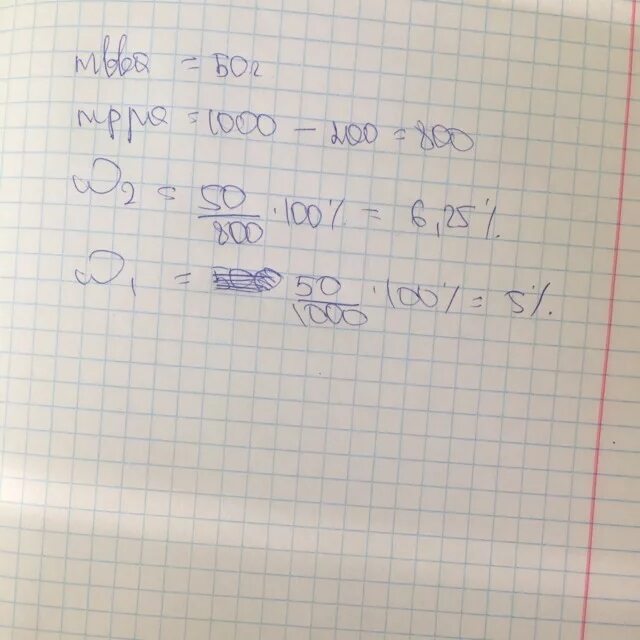 mвва = 50г
mр-ра = 1000 - 200 = 800
ω₂ = 50/800 · 100% = 6,25%.
ω₁ = 50/1000 · 100% = 5%.